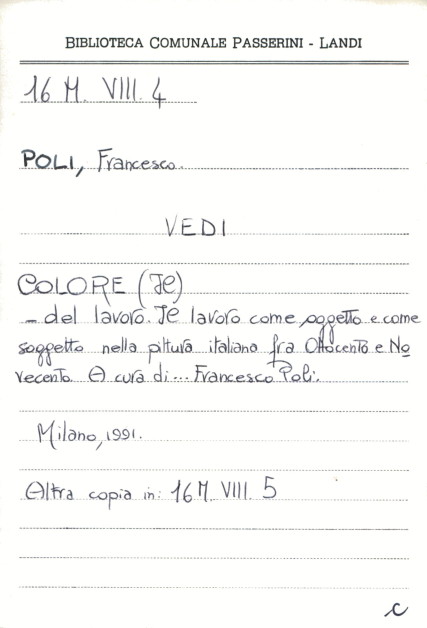 BIBLIOTECA COMUNALE PASSERINI - LANDI
16 M. VIII. 4
POLI, Francesco.
VEDI
COLORE (Il)
- del lavoro. Il lavoro come oggetto e come
soggetto nella pittura italiana fra Ottocento e No
vecento. A cura di... Francesco Poli.
Milano, 1991.
Altra copia in: 16 M. VIII. 5
c